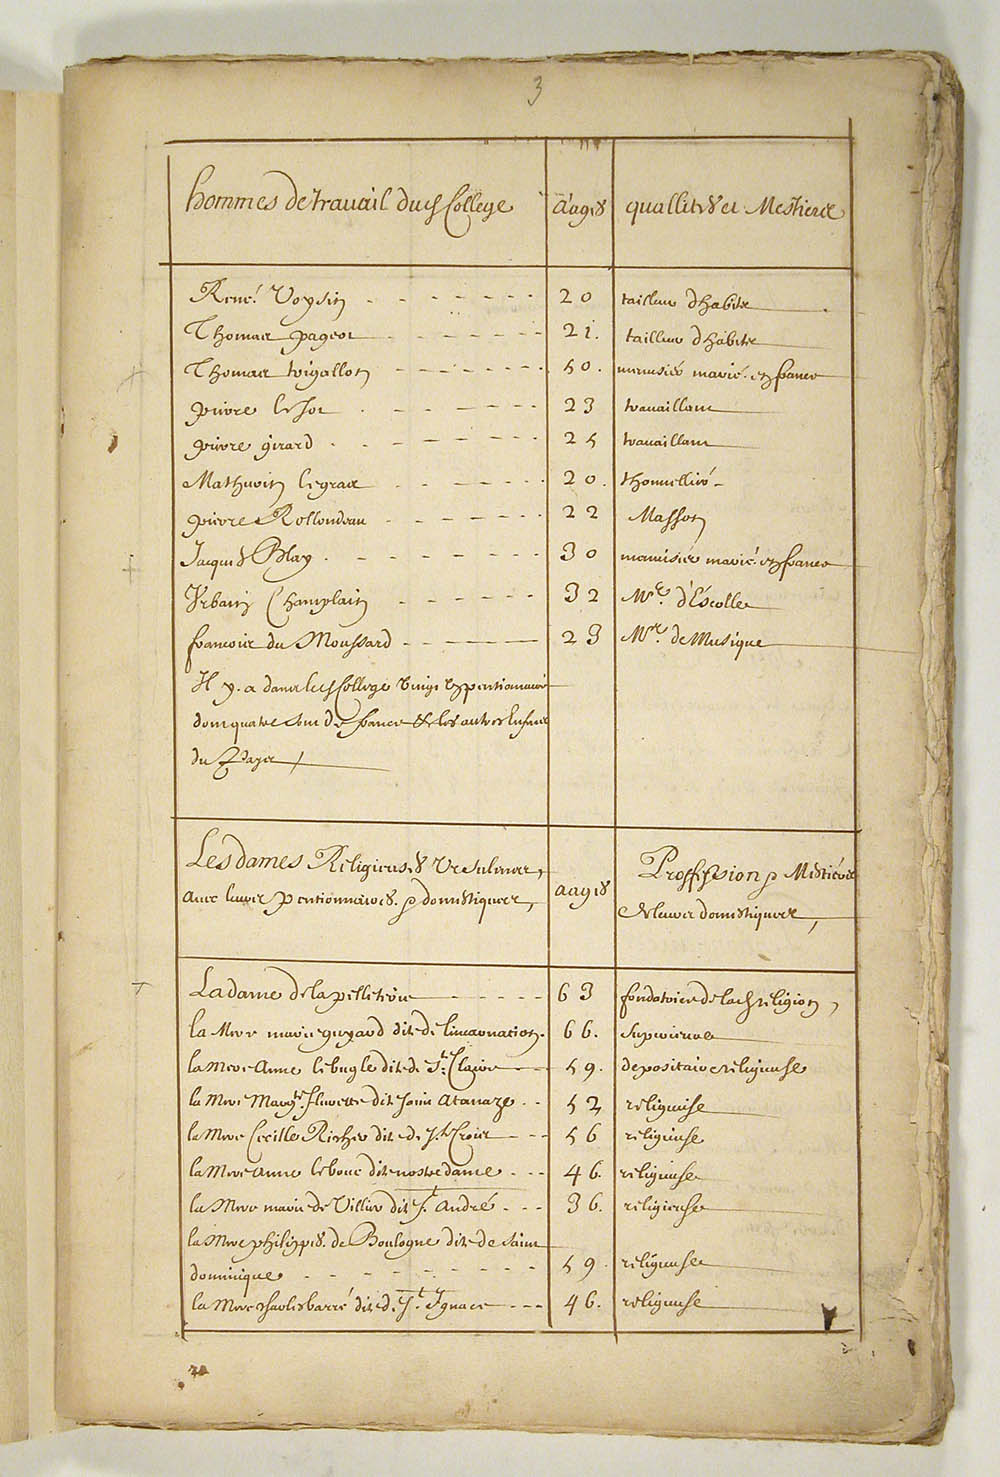 3
hommes de travail dud College aages quallites et Mestiers
René Voysin 20 tailleur d'habits
Thomas pageot 21. tailleur d'habits
Thomas 50. menusier marié en france
pierre le 23 travaillant
pierre girard 25 travaillant
Mathurin legras 20. thonnellier
pierre Rollondeau 22 Masson
Jacques Blay 30 menusier marié en france
Vrbain Champlain 32 Mre d'Escolle
francois du Moussard 23 Mre de Musique
Il y a dans led College vingt pentionnaires
dont quatre sont de france & les autres Enfans
du Pays /
Les dames Religieuses Vrsulines, aages Proffession Mestiers
auec leurs pentionnaires domestiques, & leurs domestiques,
La dame de la pelleterie 63 fondatrice de lad religion,
la Mere marie guyard dite de lincarnation. 66. Superieure
la Mere Anne lebugle dite de Ste Claire 59. depositaire religieuse
la Mere Margte fluuette dite saint Atanaze 52 religieuse
la Mere Cecille Richer dite de Ste Croix 56 religieuse
la Mere Anne lebouc dite nostre dame 46. religieuse
la Mere marie de Villier dite St André 36. religieuse
la Mere philippes de Boulogne dite de saint
dominique 59. religieuse
la Mere charles barré dite de St Ignace 46. religieuse